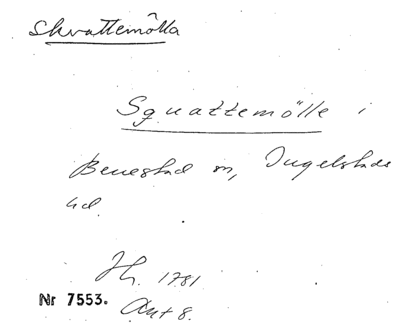 Skvattemölla
Squattemölle i
Benestad sn, Ingelstads
hd.
Jb. 1781
Nr 7553. Ant 8.